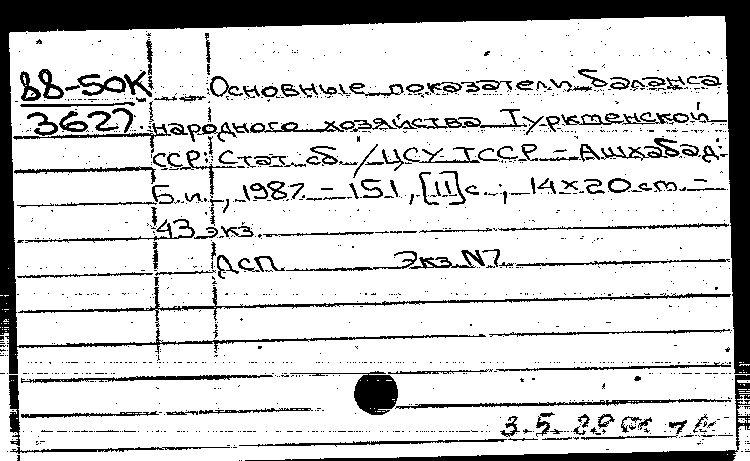 88-50К Основные показатели баланса
3627 народного хозяйства Туркменской
ССР: Стат. сб. / ЦСУ ТССР - Ашхабад:
Б.и., 1987. - 151, [II] с. ; 14×20 cm. -
43 экз.
ДСП Экз.N7
3.5.88